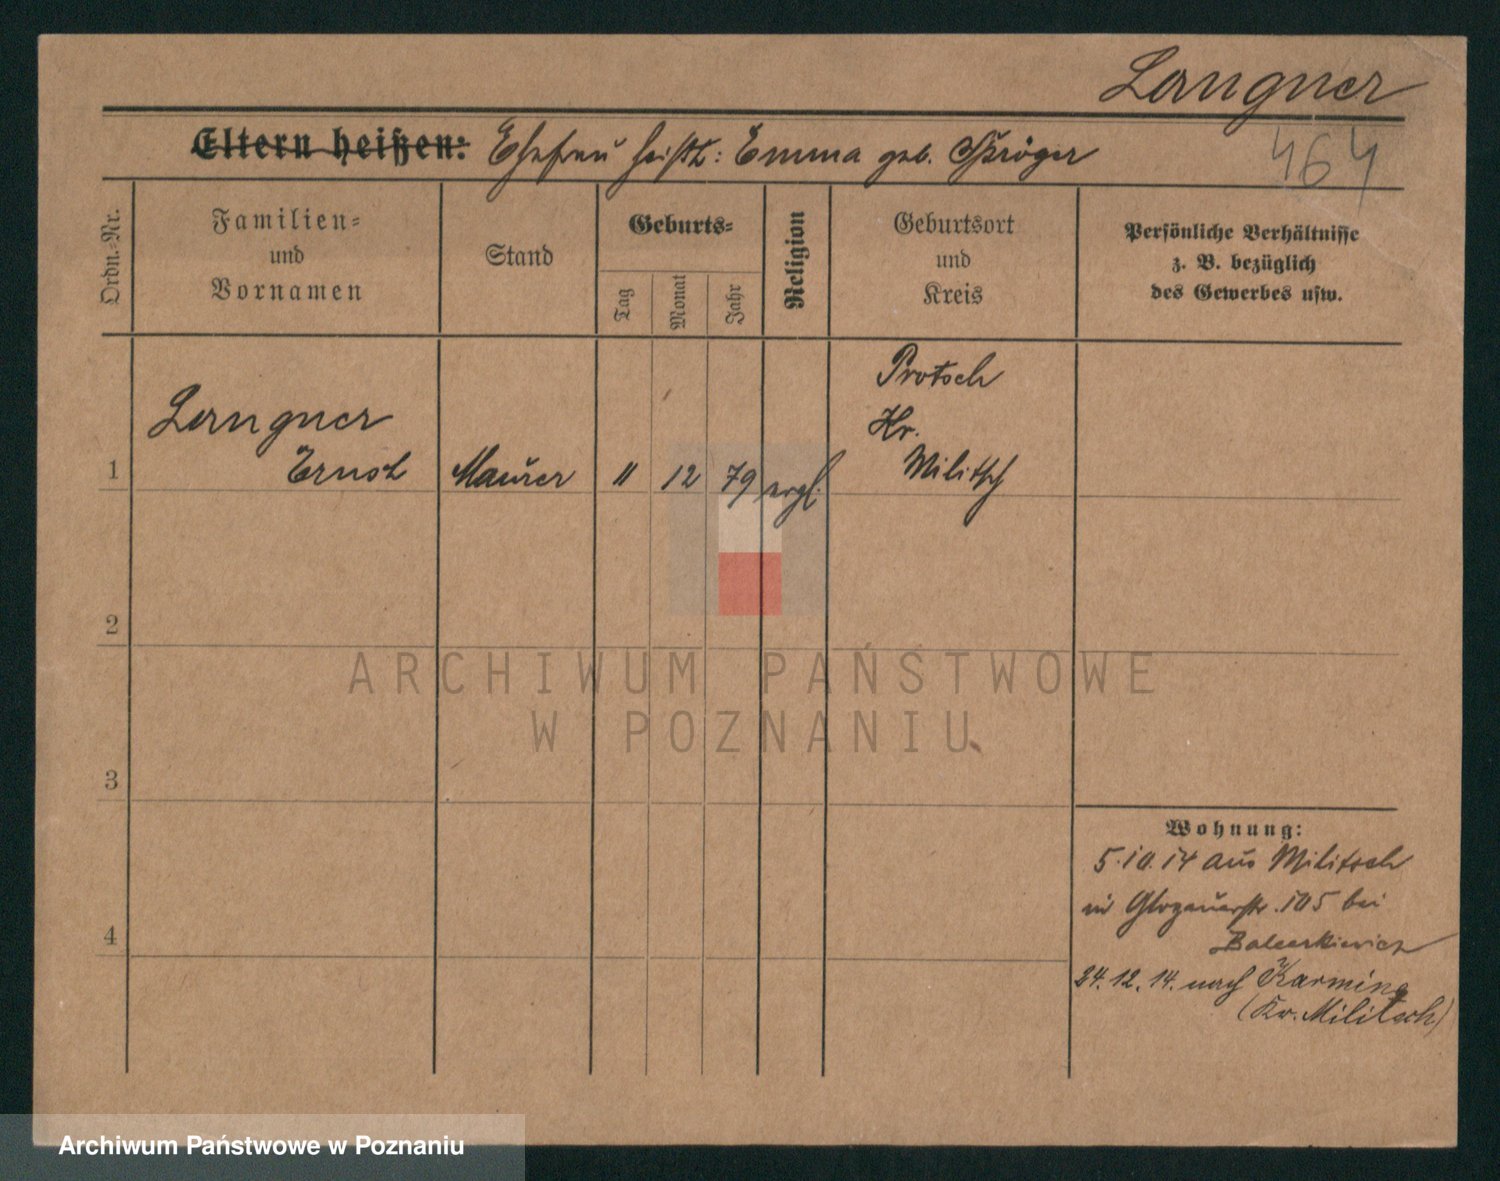 Langner
464
Eltern heißen: Ehefrau heißt: Emma geb. Kröger
Ordn.-Nr.
Familien-
und
Vornamen
Stand
Geburts-
Tag
Monat
Jahr
Religion
Geburtsort
und
Kreis
Persönliche Verhältnisse
z. B. bezüglich
des Gewerbes usw.
Protsch
Langner
Kr.
1 Ernst Maurer 11 12 79 evgl. Militsch
2
3
4
Wohnung:
5.10.14 aus Militsch
in Glogauerstr. 105 bei
24.12.14. nach Karmine
(Kr. Militsch)
ARCHIWUM PAŃSTWOWE
W POZNANIU
Archiwum Państwowe w Poznaniu